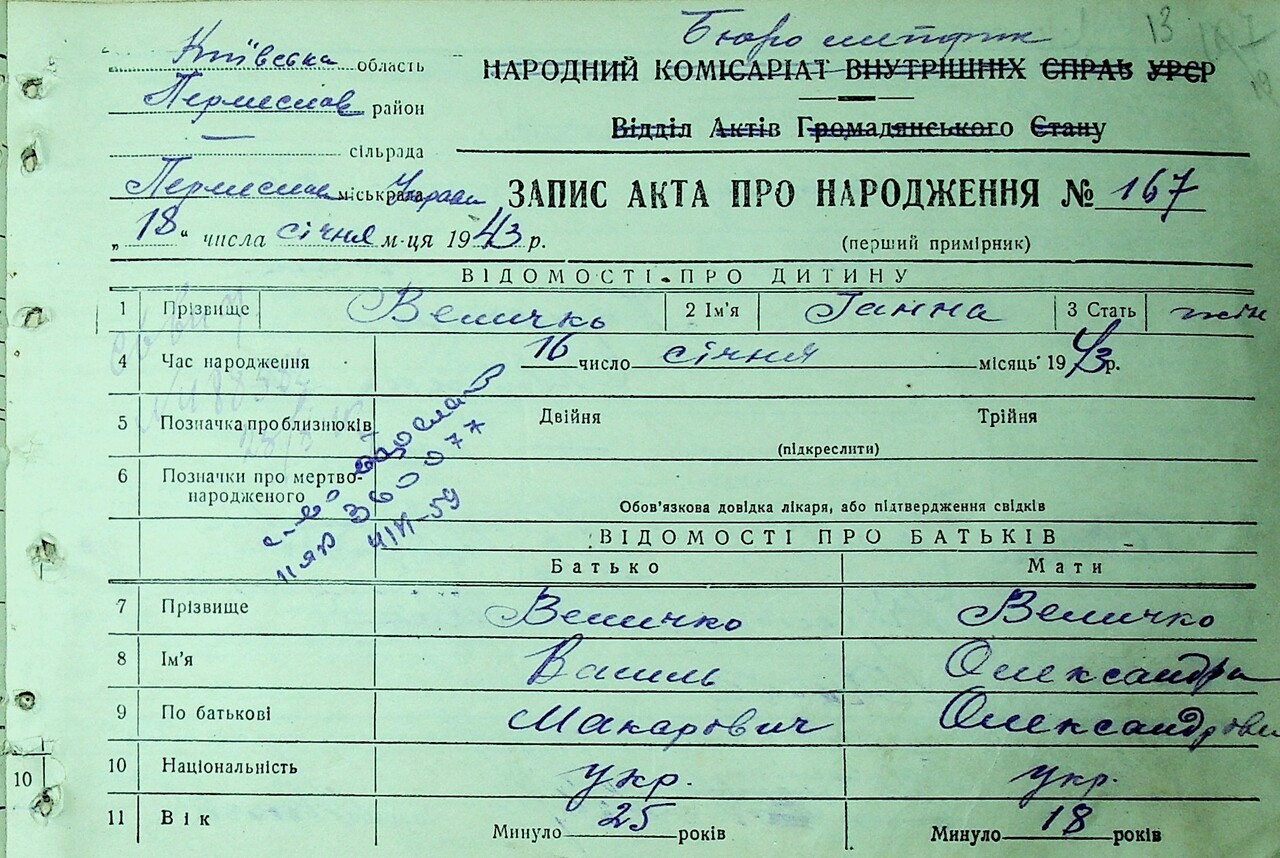 13
Бюро метрик
Київська область
НАРОДНИЙ КОМІСАРІАТ ВНУТРІШНІХ СПРАВ УРСР
район
Відділ Актів Громадянського Стану
сільрада
міськрада Управи
ЗАПИС АКТА ПРО НАРОДЖЕННЯ № 167
„ 18 “ числа січня м-ця 1943 р.
(перший примірник)
ВІДОМОСТІ ПРО ДИТИНУ
1 Прізвище Величко 2 Ім'я Ганна 3 Стать жін
4 Час народження 16 число січня місяць 1943 р.
5 Позначка про близнюків Двійня Трійня
(підкреслити)
6 Позначки про мертво-
народженого
Обов'язкова довідка лікаря, або підтвердження свідків
360077
ВІДОМОСТІ ПРО БАТЬКІВ
Батько Мати
7 Прізвище Величко Величко
8 Ім'я Василь Олександра
9 По батькові Макарович Олександрови
10 Національність укр. укр.
11 Вік Минуло 25 років Минуло 18 років
10